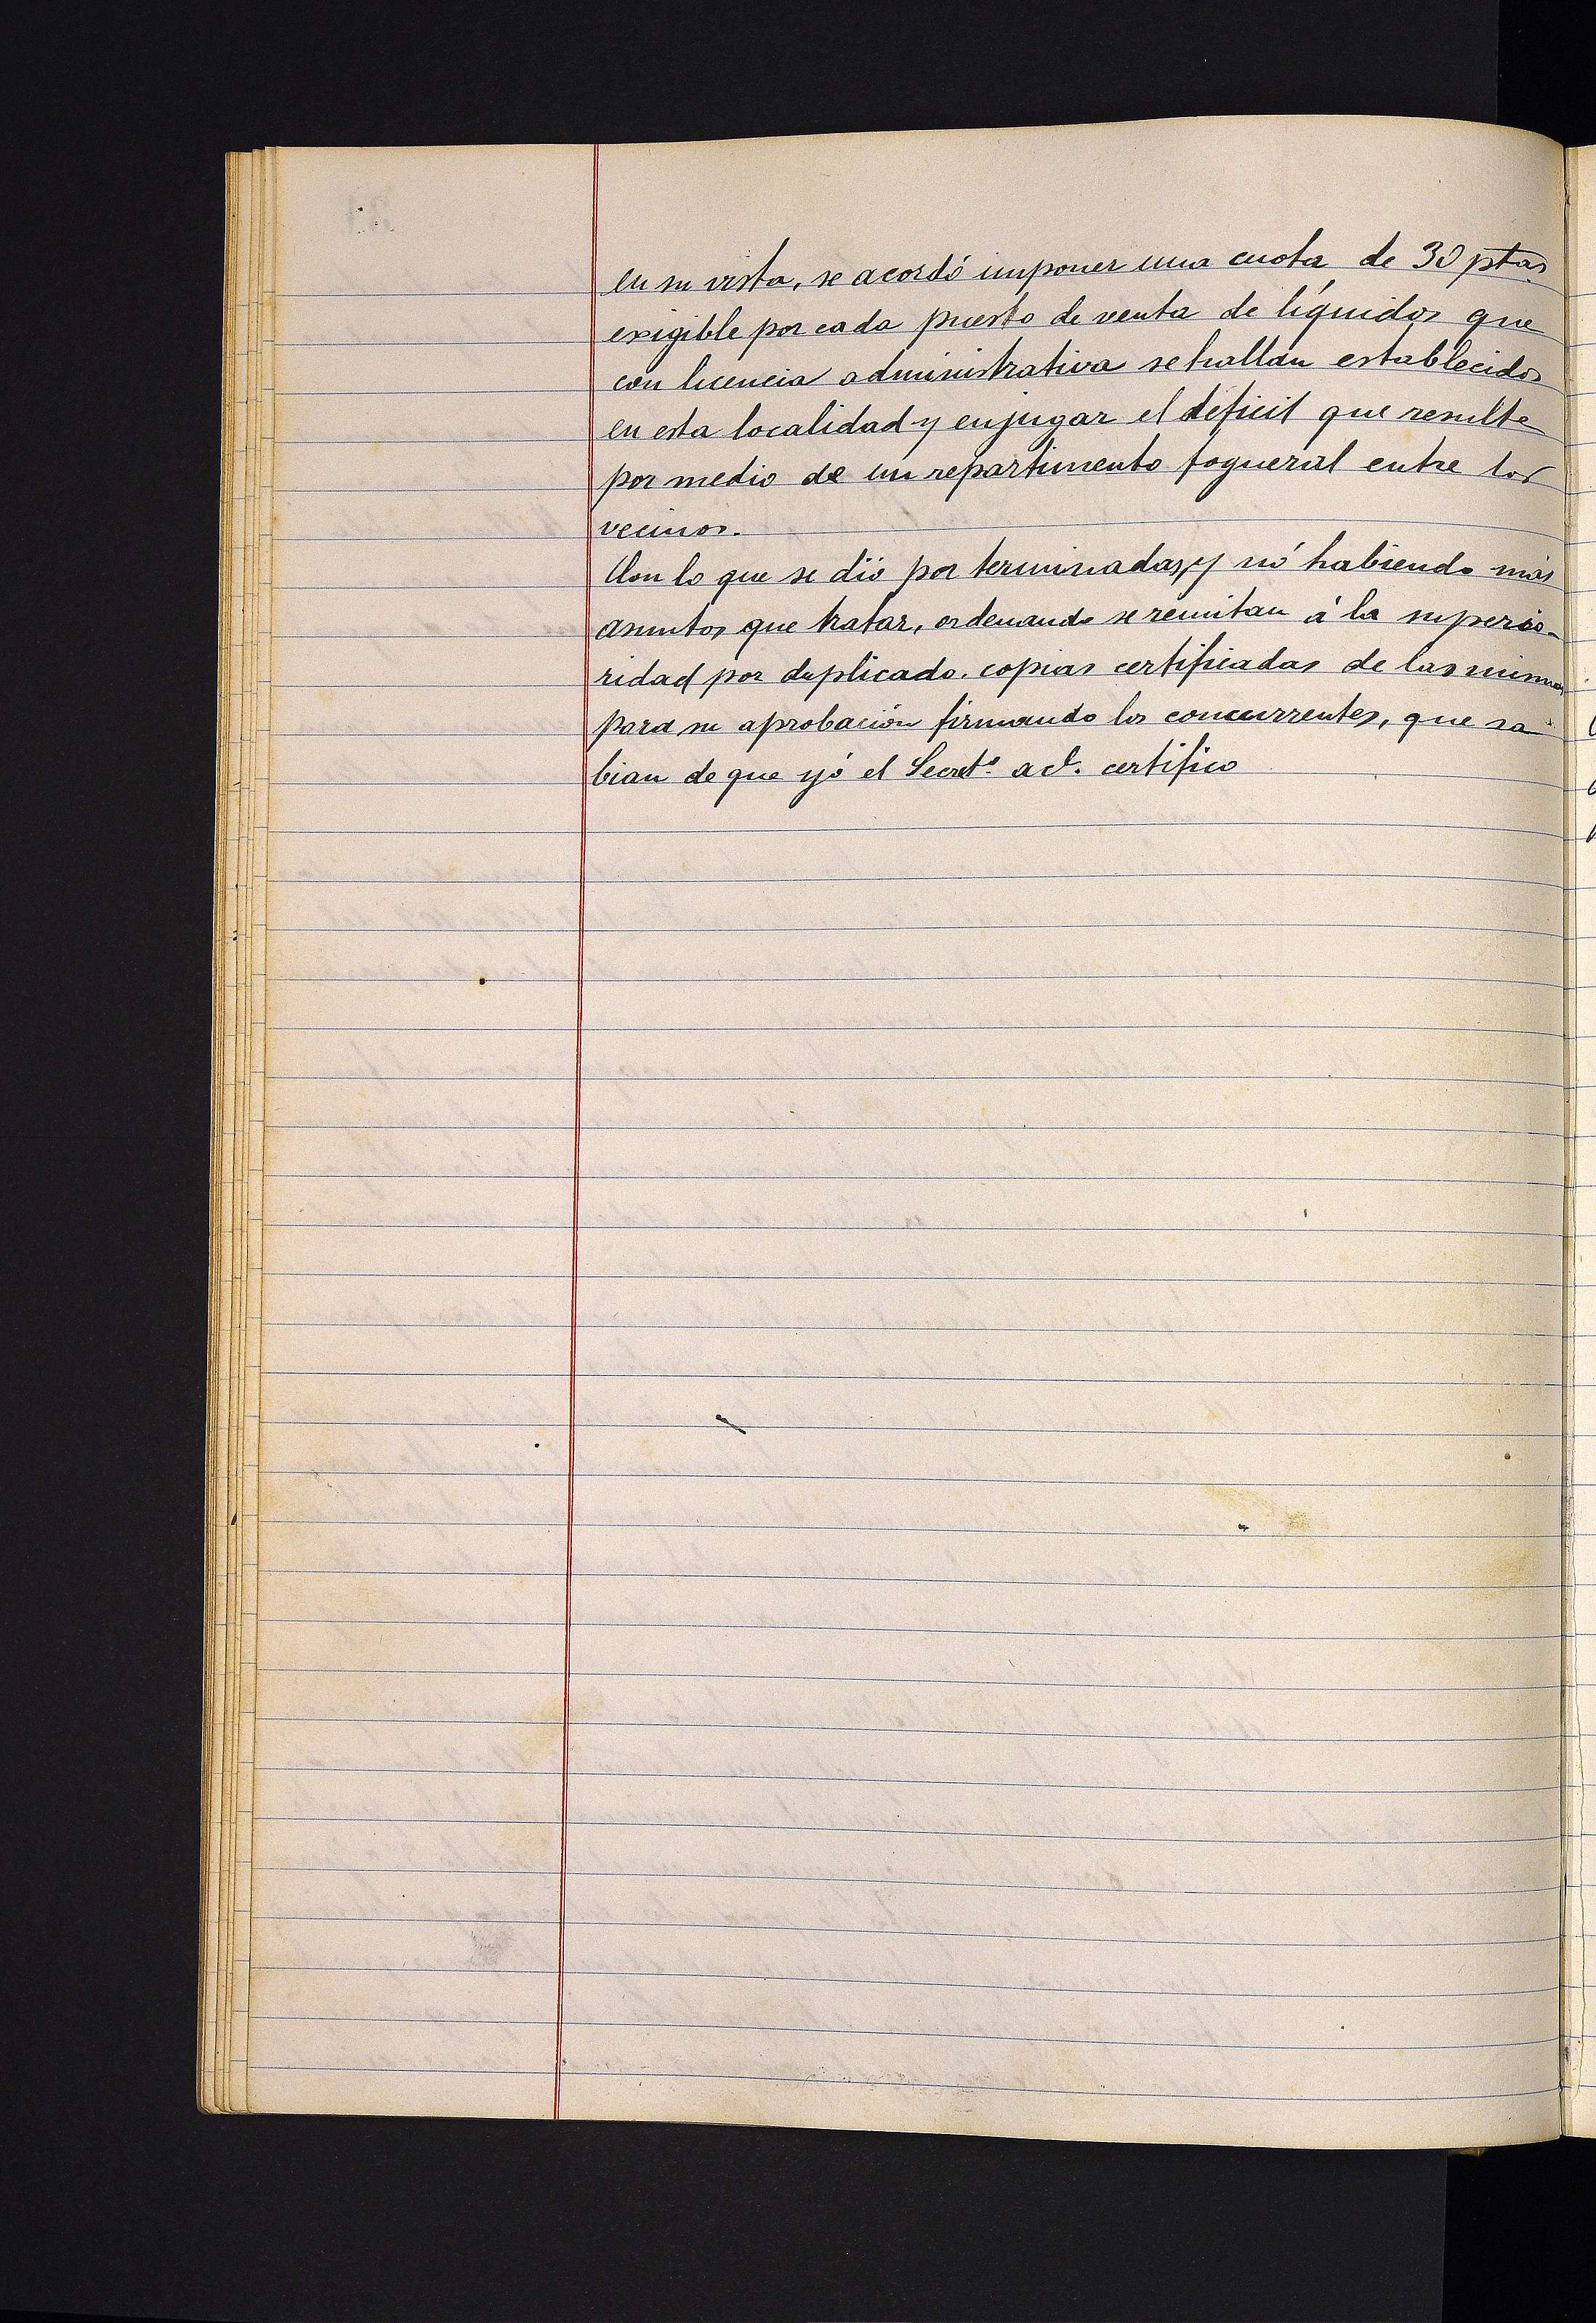 en su vista, se acordó imponer una cuota de 30 ptas
exigible por cada puesto de venta de líquidos que
con licencia administrativa se hallan establecidos
en esta localidad y enjugar el déficit que resulte
por medio de un repartimento fogueral entre los
vecinos.
Con lo que se dió por terminadas, y nó habiendo más
asuntos que tratar, ordenando se remitan á la superio-
ridad por duplicado. copias certificadas de las mismas
para su aprobación firmando los concurrentes, que sa
bian de que yó el Secretº. acl. certifico